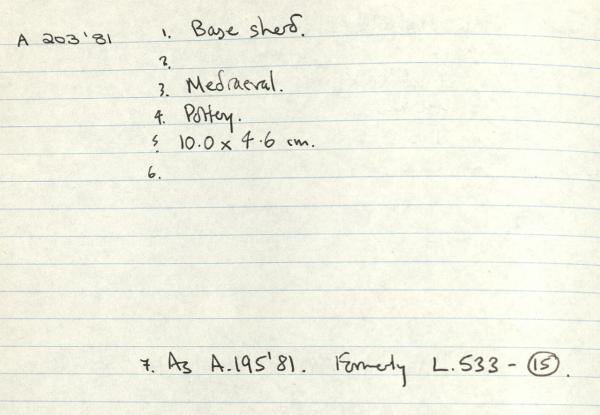 A 203'81 1. Base sherd.
2.
3. Mediaeval.
4. Pottery.
5 10.0 x 4.6 cm.
6.
7. As A.195'81. Formerly L.533 - 15.